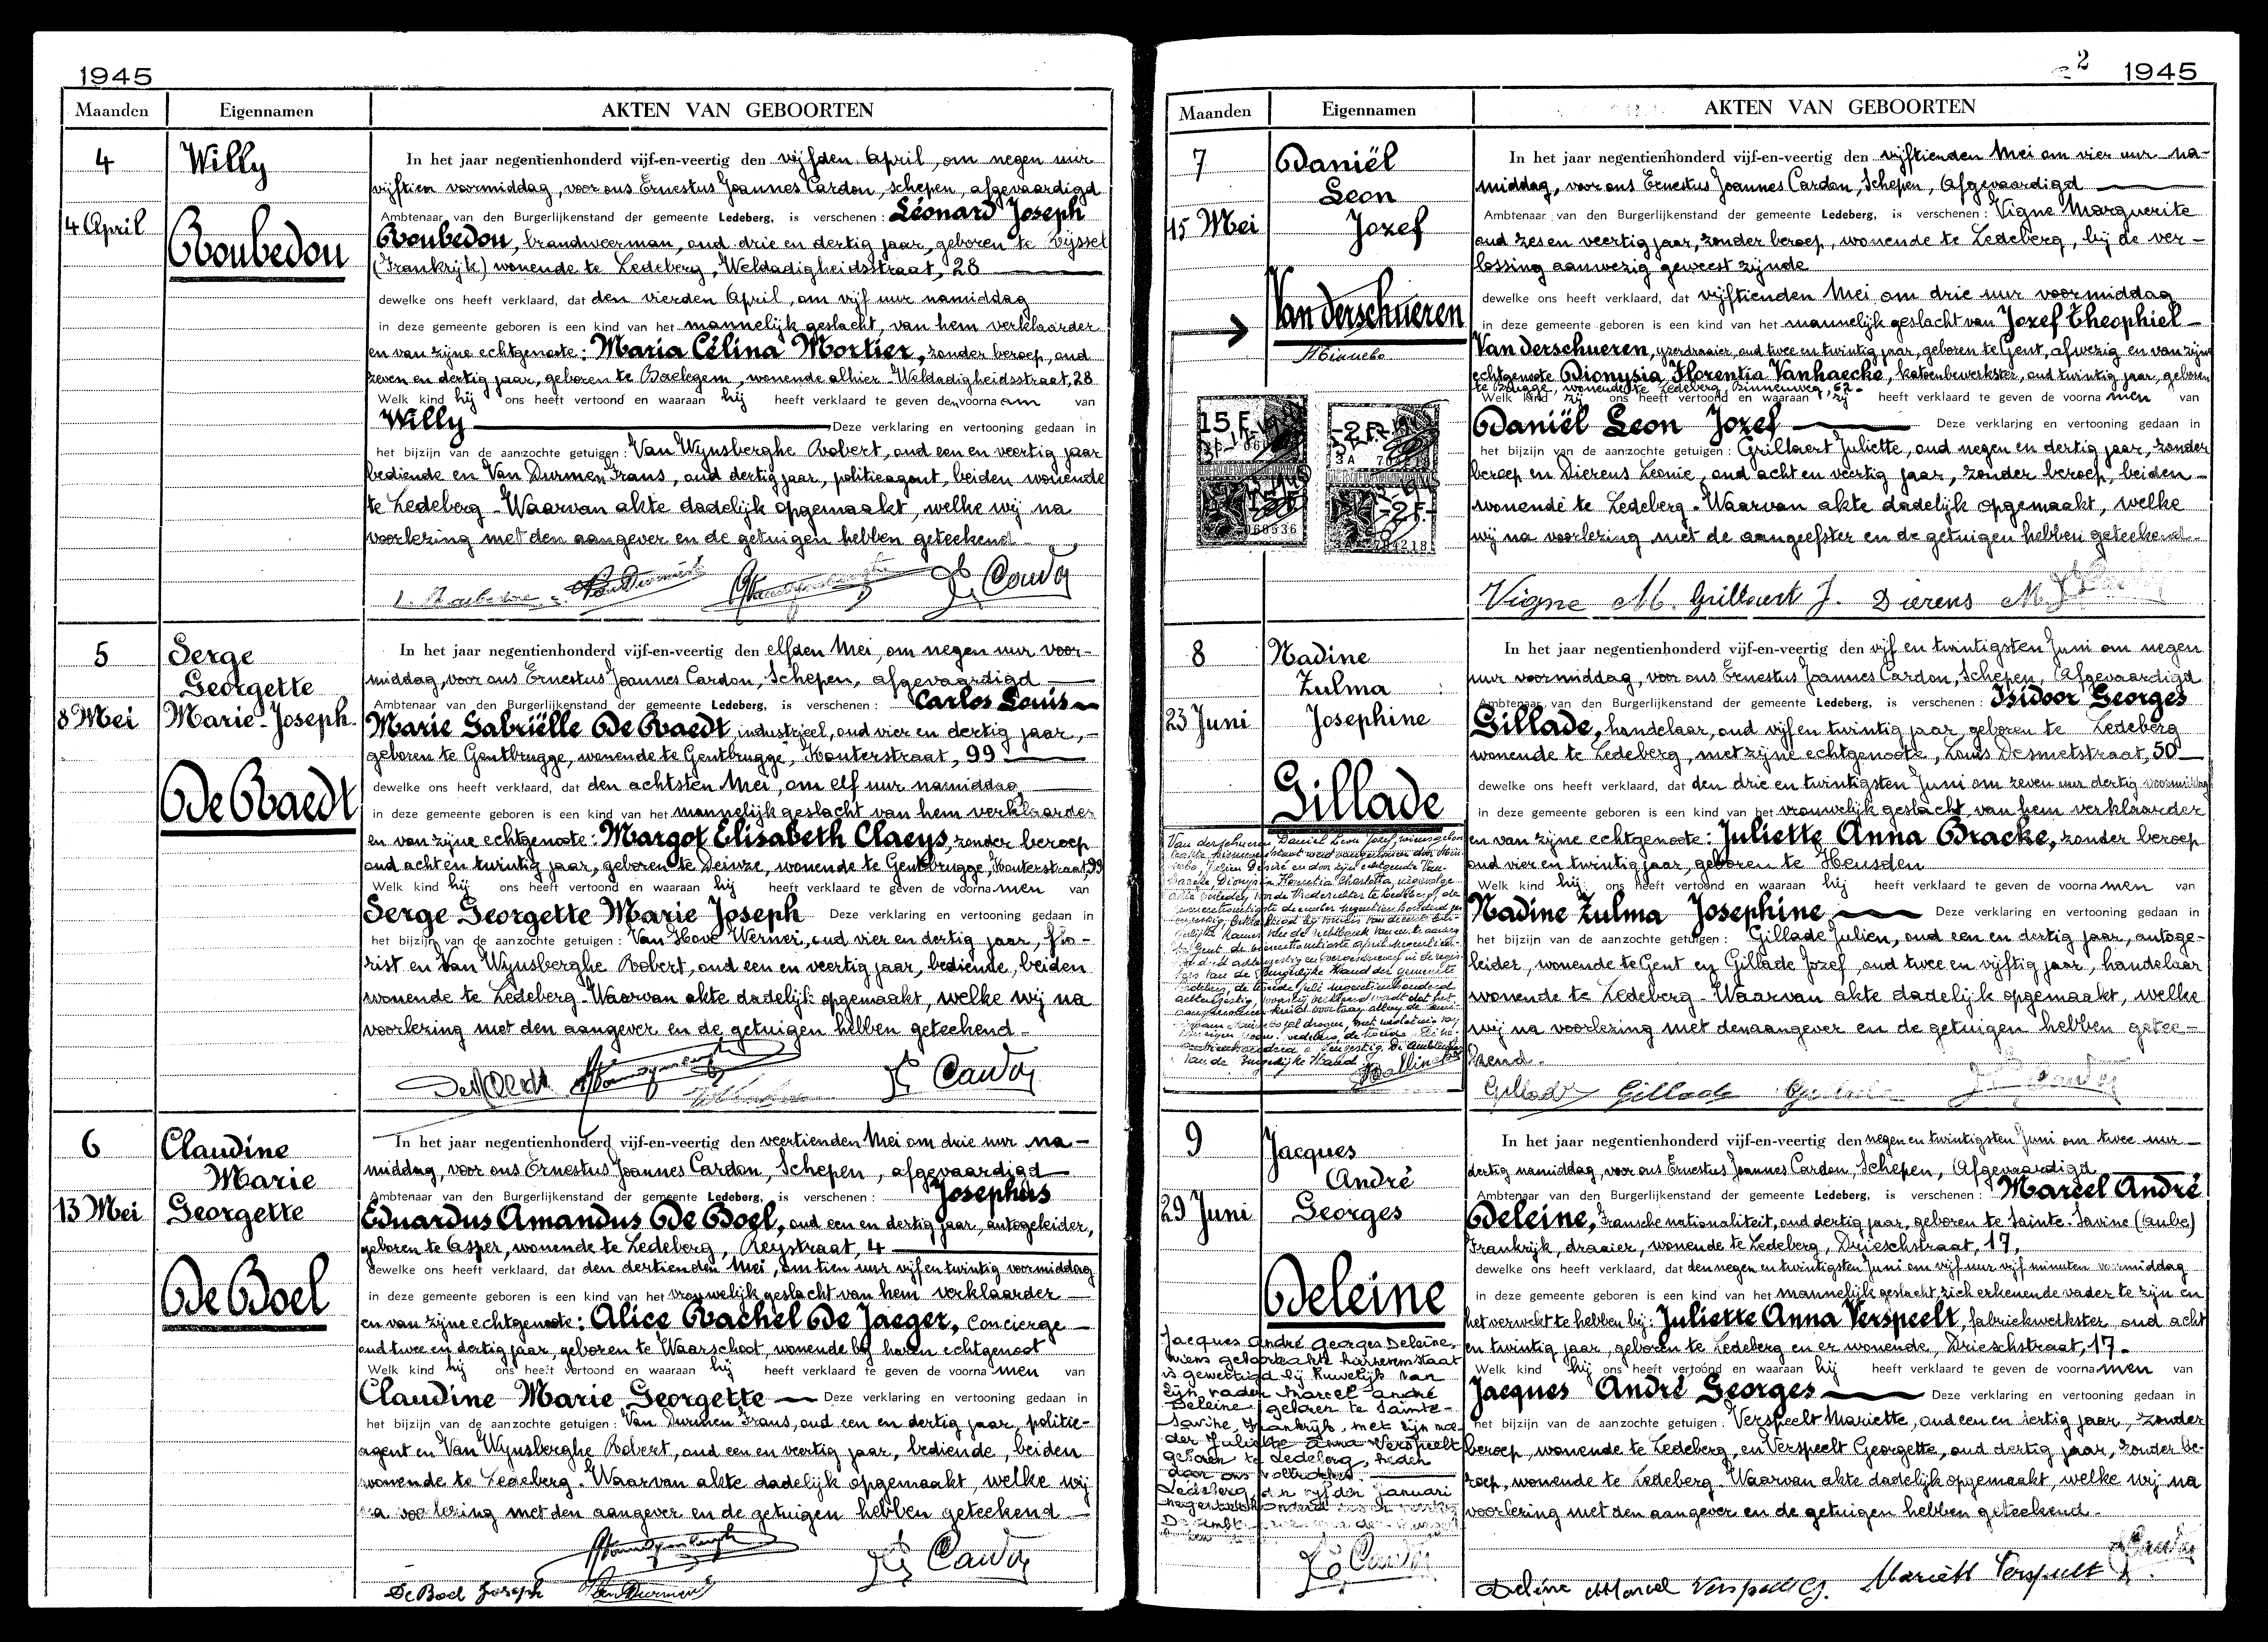 1945
Maanden Eigennamen AKTEN VAN GEBOORTEN
4
4 April
Willy
Roubedou
In het jaar negentienhonderd vijf-en-veertig den vijfden April, om negen uur
vijftien voormiddag, voor ons Ernestus Joannes Cardon, schepen, afgevaardigd
Ambtenaar van den Burgerlijkenstand der gemeente Ledeberg, is verschenen: Léonard Joseph
Roubedou, brandweerman, oud drie en dertig jaar, geboren te Rijssel
(Frankrijk) wonende te Ledeberg, Weldadigheidsstraat, 28
dewelke ons heeft verklaard, dat den vierden April, om vijf uur namiddag
in deze gemeente geboren is een kind van het mannelijk geslacht, van hem verklaarder
en van zijne echtgenote: Maria Célina Mortier, zonder beroep, oud
zeven en dertig jaar, geboren te Baelegem, wonende alhier Weldadigheidsstraat, 28
Welk kind hij ons heeft vertoond en waaraan hij heeft verklaard te geven den voornaam van
Willy Deze verklaring en vertooning gedaan in
het bijzijn van de aanzochte getuigen: Van Wynsberghe Robert, oud een en veertig jaar
bediende en Van Durmen Frans, oud dertig jaar, politieagent, beiden wonende
te Ledeberg - Waarvan akte dadelijk opgemaakt, welke wij na
voorlezing met den aangever en de getuigen hebben geteekend
5
8 Mei
Serge
Georgette
Marie-Joseph
De Raedt
In het jaar negentienhonderd vijf-en-veertig den elfden Mei, om negen uur voor-
middag, voor ons Ernestus Joannes Cardon, Schepen, afgevaardigd
Ambtenaar van den Burgerlijkenstand der gemeente Ledeberg, is verschenen: Carlos Louis
Marie Gabriëlle De Raedt, industrieel, oud vier en dertig jaar, -
geboren te Gentbrugge, wonende te Gentbrugge, Houterstraat, 99
dewelke ons heeft verklaard, dat den achtsten Mei, om elf uur namiddag
in deze gemeente geboren is een kind van het mannelijk geslacht van hem verklaarder
en van zijne echtgenote: Margot Elisabeth Claeys, zonder beroep
oud acht en twintig jaar, geboren te Deinze, wonende te Gentbrugge, Houterstraat, 99
Welk kind hij ons heeft vertoond en waaraan hij heeft verklaard te geven de voornamen van
Serge Georgette Marie Joseph Deze verklaring en vertooning gedaan in
het bijzijn van de aanzochte getuigen: Van Hove Werner, oud vier en dertig jaar, flo-
rist en Van Wynsberghe Robert, oud een en veertig jaar, bediende, beiden
wonende te Ledeberg - Waarvan akte dadelijk opgemaakt, welke wij na
voorlezing met den aangever en de getuigen hebben geteekend -
6
13 Mei
Claudine
Marie
Georgette
De Boel
In het jaar negentienhonderd vijf-en-veertig den veertienden Mei om drie uur na-
middag, voor ons Ernestus Joannes Cardon, Schepen, afgevaardigd
Ambtenaar van den Burgerlijkenstand der gemeente Ledeberg, is verschenen: Josephus
Eduardus Amandus De Boel, oud een en dertig jaar, autogeleider,
geboren te Asper, wonende te Ledeberg, Reystraat, 4
dewelke ons heeft verklaard, dat den dertienden Mei, om tien uur vijf en twintig voormiddag
in deze gemeente geboren is een kind van het vrouwelijk geslacht van hem verklaarder
en van zijne echtgenote: Alice Rachel De Jaeger, concierge
oud twee en dertig jaar, geboren te Waarschoot, wonende bij haren echtgenoot
Welk kind hij ons heeft vertoond en waaraan hij heeft verklaard te geven de voornamen van
Claudine Marie Georgette Deze verklaring en vertooning gedaan in
het bijzijn van de aanzochte getuigen: Van Durmen Frans, oud een en dertig jaar, politie-
agent en Van Wynsberghe Robert, oud een en veertig jaar, bediende, beiden
wonende te Ledeberg - Waarvan akte dadelijk opgemaakt, welke wij
na voorlezing met den aangever en de getuigen hebben geteekend
De Boel Joseph
2 1945
Maanden Eigennamen AKTEN VAN GEBOORTEN
7
15 Mei
Daniël
Leon
Jozef
Van derschueren
Minnebo
15 F.
-2 F.-
-2 F.-
In het jaar negentienhonderd vijf-en-veertig den vijftienden Mei om vier uur na-
middag, voor ons Ernestus Joannes Cardon, Schepen, Afgevaardigd
Ambtenaar van den Burgerlijkenstand der gemeente Ledeberg, is verschenen: Vigne Marguerite
oud zes en veertig jaar, zonder beroep, wonende te Ledeberg, bij de ver-
lossing aanwezig geweest zijnde
dewelke ons heeft verklaard, dat vijftienden Mei om drie uur voormiddag
in deze gemeente geboren is een kind van het mannelijk geslacht van Jozef Theophiel
Van derschueren, ijzerdraaier, oud twee en twintig jaar, geboren te Gent, afwezig en van zijne
echtgenote Dionysia Florentia Vanhaecke, katoenbewerkster, oud twintig jaar, geboren
te Brugge, wonende te Ledeberg, Binnenweg, 62-
Welk kind zij ons heeft vertoond en waaraan zij heeft verklaard te geven de voornamen van
Daniël Leon Jozef Deze verklaring en vertooning gedaan in
het bijzijn van de aanzochte getuigen: Grillaert Juliette, oud negen en dertig jaar, zonder
beroep en Dierens Leonie, oud acht en veertig jaar, zonder beroep, beiden -
wonende te Ledeberg. Waarvan akte dadelijk opgemaakt, welke
wij na voorlezing met de aangeefster en de getuigen hebben geteekend.
Vigne M. Grillaert J. Dierens M.
8
23 Juni
Nadine
Zulma
Josephine
Gillade
In het jaar negentienhonderd vijf-en-veertig den vijf en twintigsten Juni om negen
uur voormiddag, voor ons Ernestus Joannes Cardon, Schepen, Afgevaardigd
Ambtenaar van den Burgerlijkenstand der gemeente Ledeberg, is verschenen: Isidoor Georges
Gillade, handelaar, oud vijf en twintig jaar, geboren te Ledeberg
wonende te Ledeberg, met zijne echtgenoote, Louis Desmetstraat, 50
dewelke ons heeft verklaard, dat den drie en twintigsten Juni om zeven uur dertig voormiddag
in deze gemeente geboren is een kind van het vrouwelijk geslacht, van hem verklaarder
en van zijne echtgenote: Juliette Anna Bracke, zonder beroep
oud vier en twintig jaar, geboren te Heusden
Welk kind hij ons heeft vertoond en waaraan hij heeft verklaard te geven de voornamen van
Nadine Zulma Josephine Deze verklaring en vertooning gedaan in
het bijzijn van de aanzochte getuigen: Gillade Julien, oud een en dertig jaar, autoge-
leider, wonende te Gent en Gillade Jozef, oud twee en vijftig jaar, handelaar
wonende te Ledeberg - Waarvan akte dadelijk opgemaakt, welke
wij na voorlezing met den aangever en de getuigen hebben getee-
kend.
Gillade Gillade
9
29 Juni
Jacques
André
Georges
Deleine
Jacques André Georges Deleine,
wiens geboorteakte hiernevens staat
is gewettigd bij huwelijk van
zijn vader Marcel André
Deleine, geboren te Sainte-
Savine, Frankrijk, met zijn moe-
der Juliette Anna Verspeelt
geboren te Ledeberg, heden
door ons voltrokken.
Ledeberg, den vijfden Januari
In het jaar negentienhonderd vijf-en-veertig den negen en twintigsten Juni om twee uur
dertig namiddag, voor ons Ernestus Joannes Cardon, Schepen, Afgevaardigd
Ambtenaar van den Burgerlijkenstand der gemeente Ledeberg, is verschenen: Marcel André
Deleine, Fransche nationaliteit, oud dertig jaar, geboren te Sainte-Savine (Aube)
Frankrijk, draaier, wonende te Ledeberg, Drieschstraat, 17,
dewelke ons heeft verklaard, dat den negen en twintigsten Juni om vijf uur vijf minuten voormiddag
in deze gemeente geboren is een kind van het mannelijk geslacht, zich erkenende vader te zijn en
het verwekt te hebben bij: Juliette Anna Verspeelt, fabriekwerkster, oud acht
en twintig jaar, geboren te Ledeberg en er wonende, Drieschstraat, 17-
Welk kind hij ons heeft vertoond en waaraan hij heeft verklaard te geven de voornamen van
Jacques André Georges Deze verklaring en vertooning gedaan in
het bijzijn van de aanzochte getuigen: Verspeelt Mariette, oud een en dertig jaar, zonder
beroep, wonende te Ledeberg, en Verspeelt Georgette, oud dertig jaar, zonder be-
roep, wonende te Ledeberg. Waarvan akte dadelijk opgemaakt, welke wij na
voorlezing met den aangever en de getuigen hebben geteekend.
Deleine Marcel Verspeelt G. Mariette Verspeelt